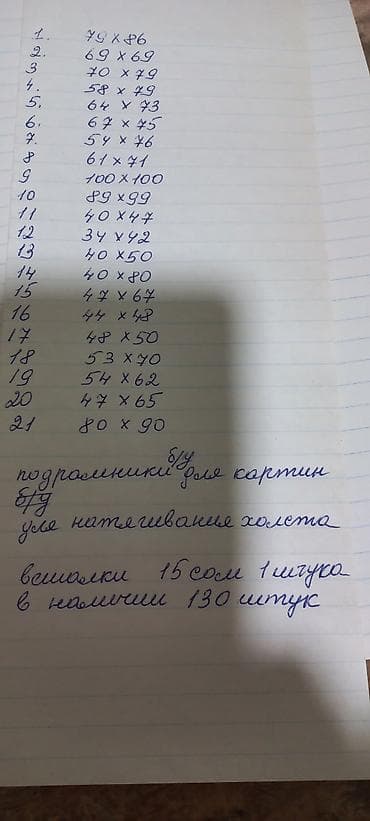 1. 79 x 86
2. 69 x 69
3 70 x 79
4. 58 x 79
5. 64 x 73
6. 67 x 75
7. 54 x 76
8 61 x 71
9 100 x 100
10 89 x 99
11 40 x 47
12 34 x 42
13 40 x 50
14 40 x 80
15 47 x 67
16 44 x 48
17 48 x 50
18 53 x 70
19 54 x 62
20 47 x 65
21 80 x 90
подрамники б/у для картин
б/у
для натягивания холста
вешалки 15 сом 1 штука
в наличии 130 штук